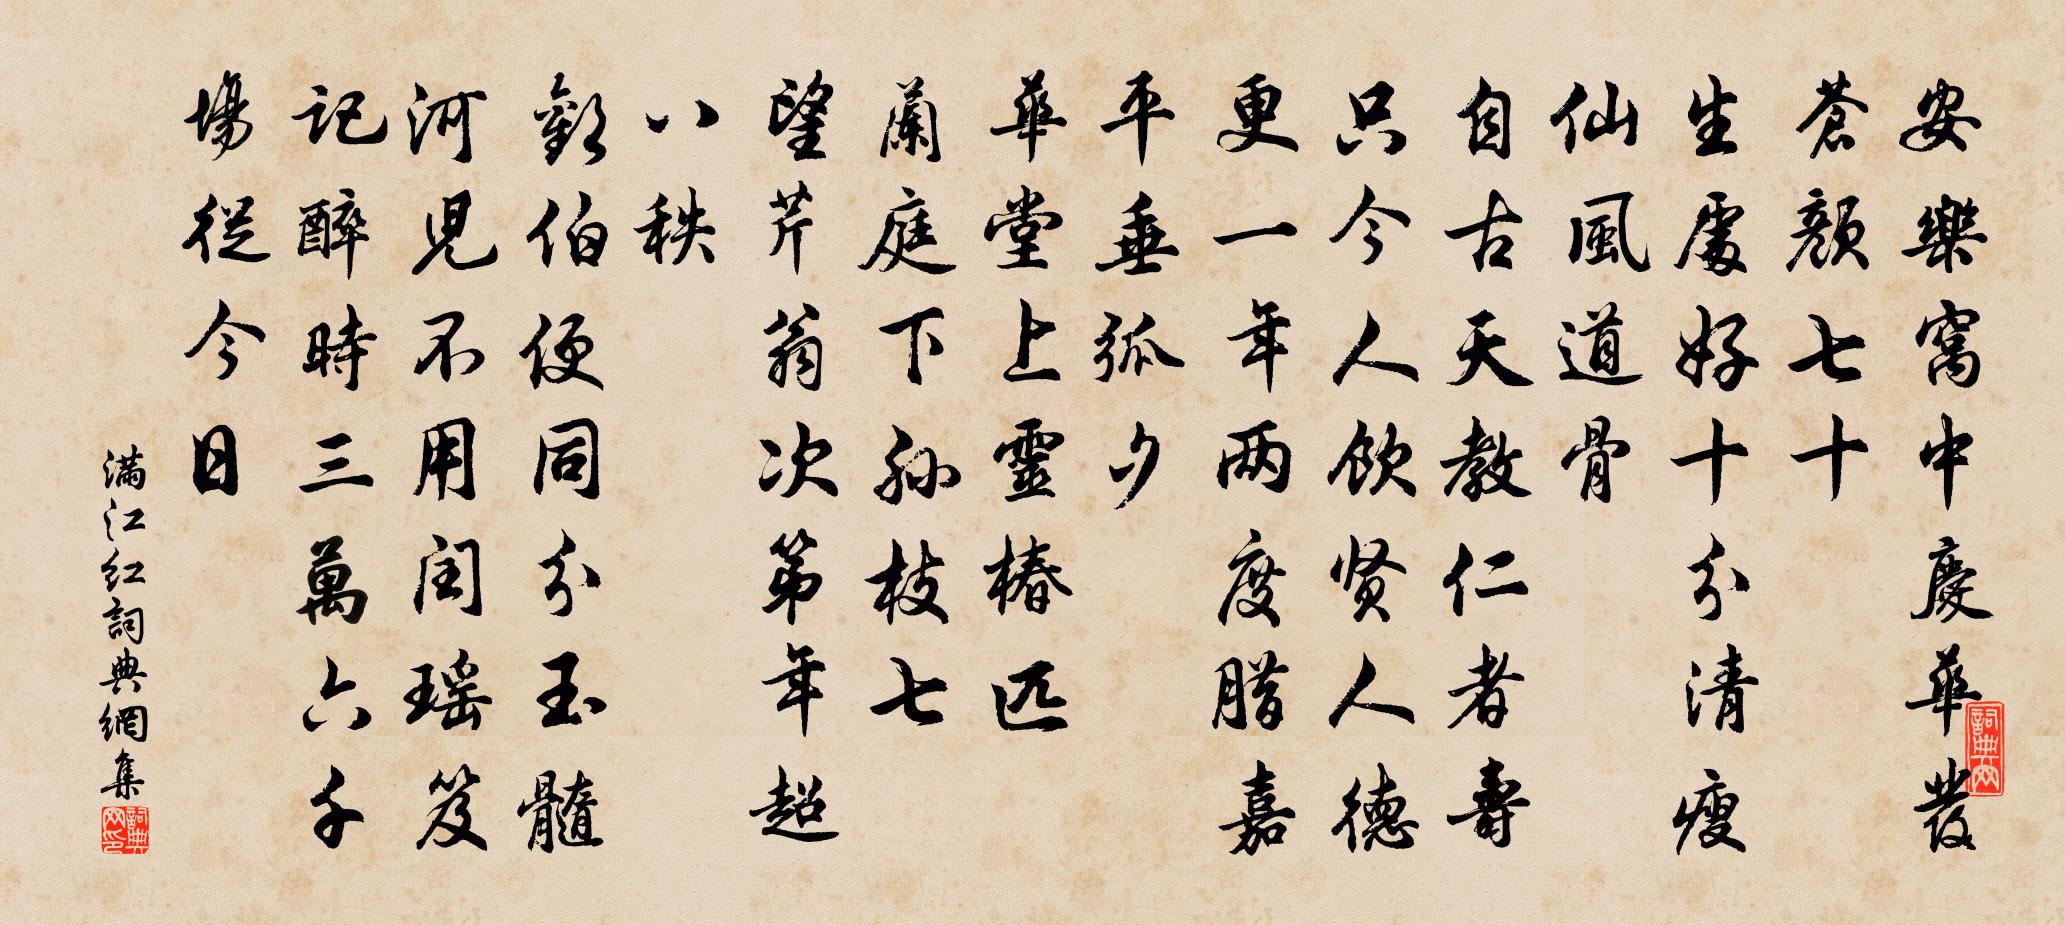 安樂窩中慶華發
蒼顏七十
生處好十分清瘦
仙風道骨
自古天教仁者壽
只今人飲贤人德
更一年两度腊嘉
平垂弧夕
華堂上靈椿匹
蘭庭下孫枝七
望芹翁次第年超
八秩
歡伯便同分玉髓
河児不用闰瑶笈
記醉時三萬六千
場從今日
滿江红詞典網集
詞典网
詞典网印